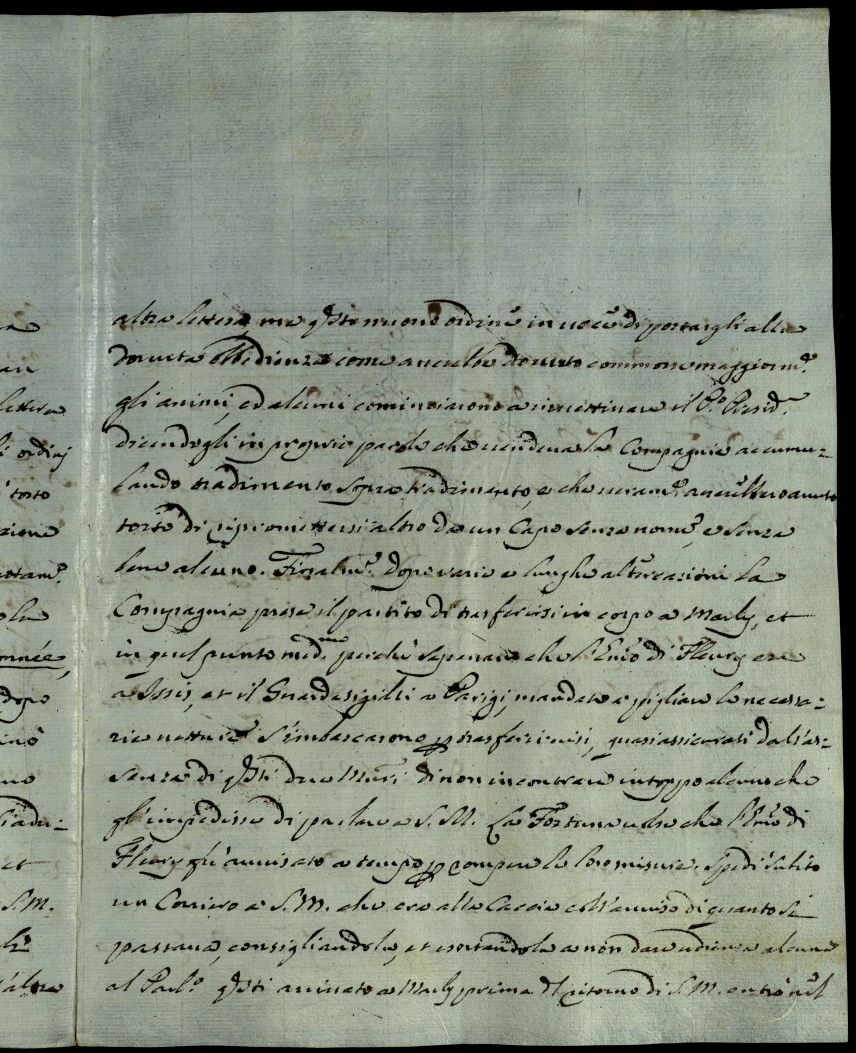 altra lettera, ma q.sto nuovo ordine in vece di portargli alla
dovuta obbedienza come avrebbe dovuto commosse maggiorm.e
gli animi, ed alcuni cominciarono a il P.o Presid.e
dicendogli in proprie parole che vendeva la Compagnia accumu-
lando tradimento sopra tradimento, e che veram.e avrebbero avuto
torto di ripromettersi altro da un Capo senza nome, e senza
bene alcuno. Finalm.e dopo varie e lunghe altercazioni la
Compagnia prese il partito di trasferirsi in corpo a Marly, et
in quel punto med.mo perchè sapevano che l'Em̃o di Fleury era
a Issis, et il Guardasigilli a Parigi, mandate a pigliare le necessa-
rie vetture s'imbarcarono p trasferirvisi, quasi assicurati dall'as-
senza di q.sti due Mnri di non incontrare intoppo alcuno che
gl'impedisse di parlare a S.M. La Fortuna volse che l'Em̃o di
Fleury fù avvisato a tempo p rompere le loro misure. Spedì subito
un Corriero a S.M. che era alla Caccia coll'avviso di quanto si
passava, consigliandola, et esortandola a non dare udienza alcuna
al Parl.o q.sti arrivato a Marly prima del ritorno di S.M. entrò nel
lettera
ordini
torto
zione
onnée,
dopo
S.M.